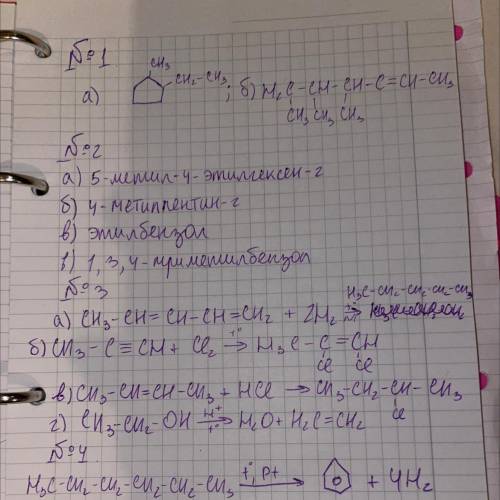 №1
а) CH₃ CH₂-CH₃ ; б) H₂C-CH-CH-C=CH-CH₃
CH₃ CH₃ CH₃
№2
а) 5-метил-4-этилгексен-2
б) 4-метилпентин-2
в) этилбензол
г) 1,3,4-триметилбензол
№3
H₃C-CH₂-CH₂-CH₂-CH₃
а) CH₃-CH=CH-CH=CH₂ + 2H₂ →
б) CH₃-C≡CH + Cl₂ →t° H₃C-C=CH
Cl Cl
в) CH₃-CH=CH-CH₃ + HCl → CH₃-CH₂-CH-CH₃
Cl
г) CH₃-CH₂-OH H⁺→t° H₂O + H₂C=CH₂
№4
H₃C-CH₂-CH₂-CH₂-CH₂-CH₃ t°, Pt→ + 4H₂